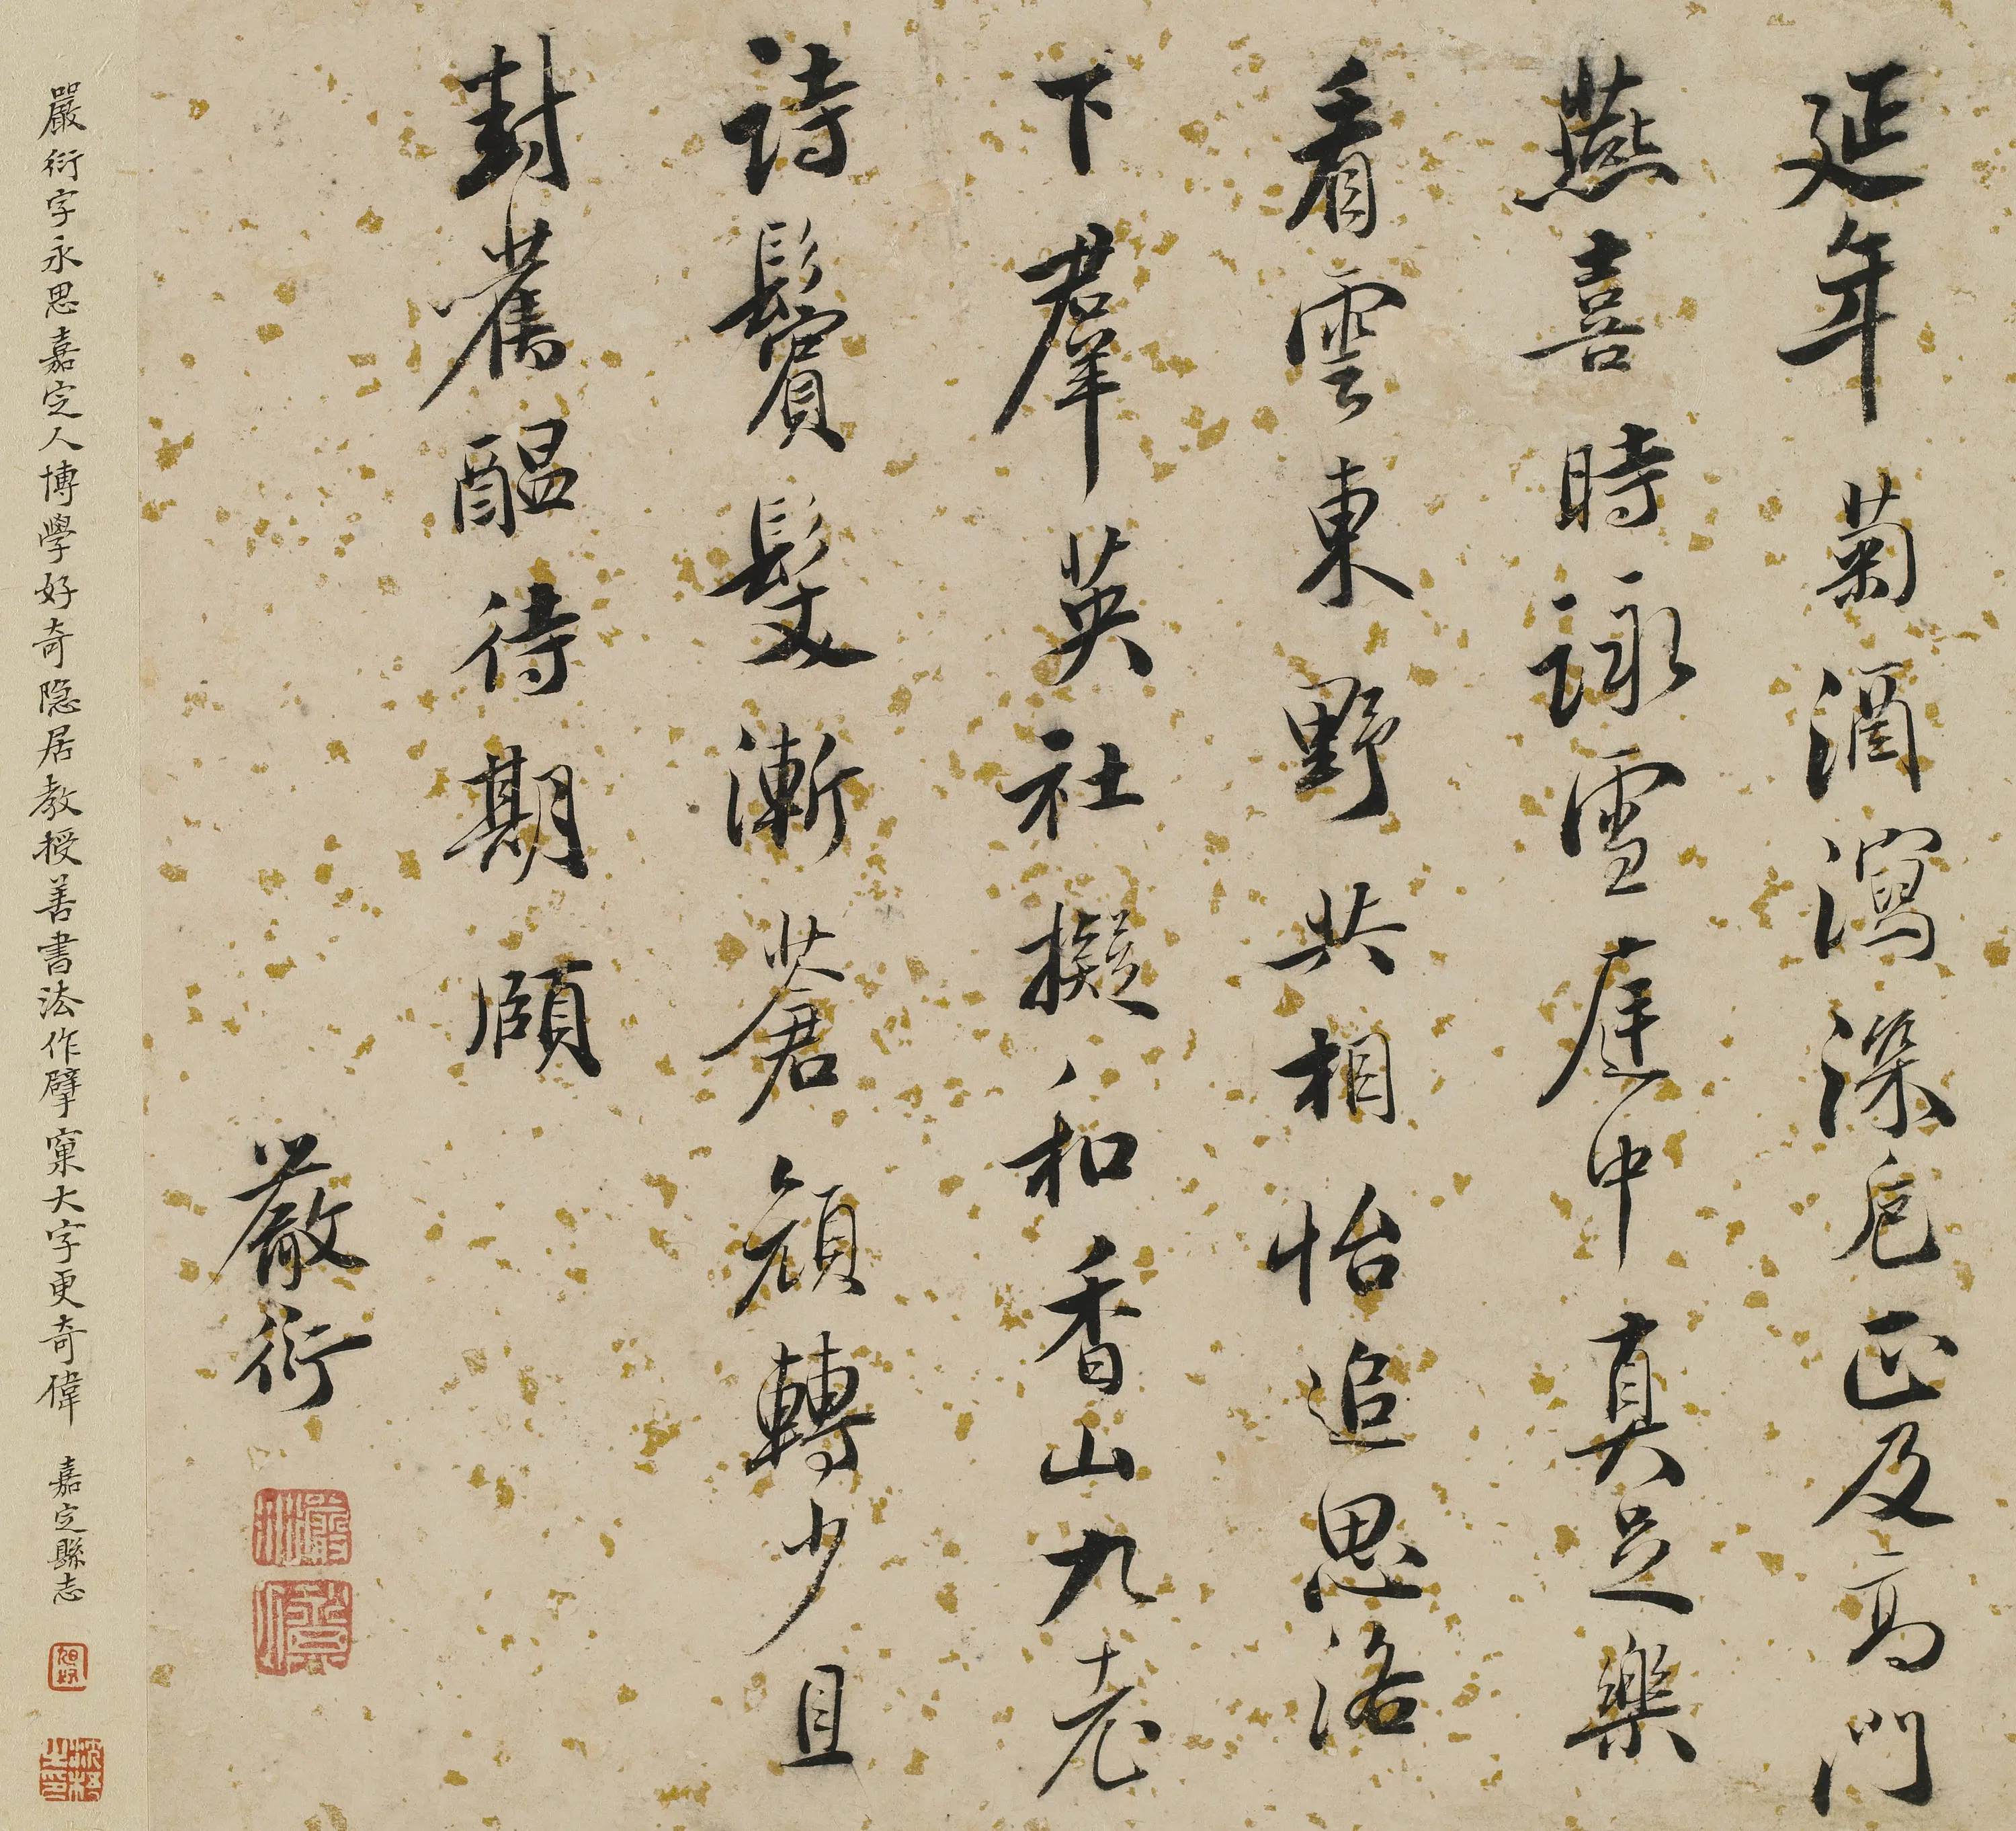 延年菊酒瀉深卮正及高門
燕喜時詠雪庭中真足樂
看雲東野共相怡追思洛
下羣英社擬和香山九老
詩鬢髮漸蒼顔轉少且
封舊醖待期頤
嚴衍
嚴衍字永思嘉定人博學好奇隐居教授善書法作擘窠大字更奇偉 嘉定縣志